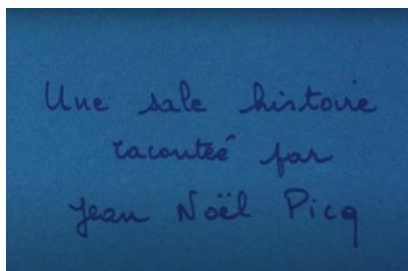 Une sale histoire
racontée par
Jean Noël Picq